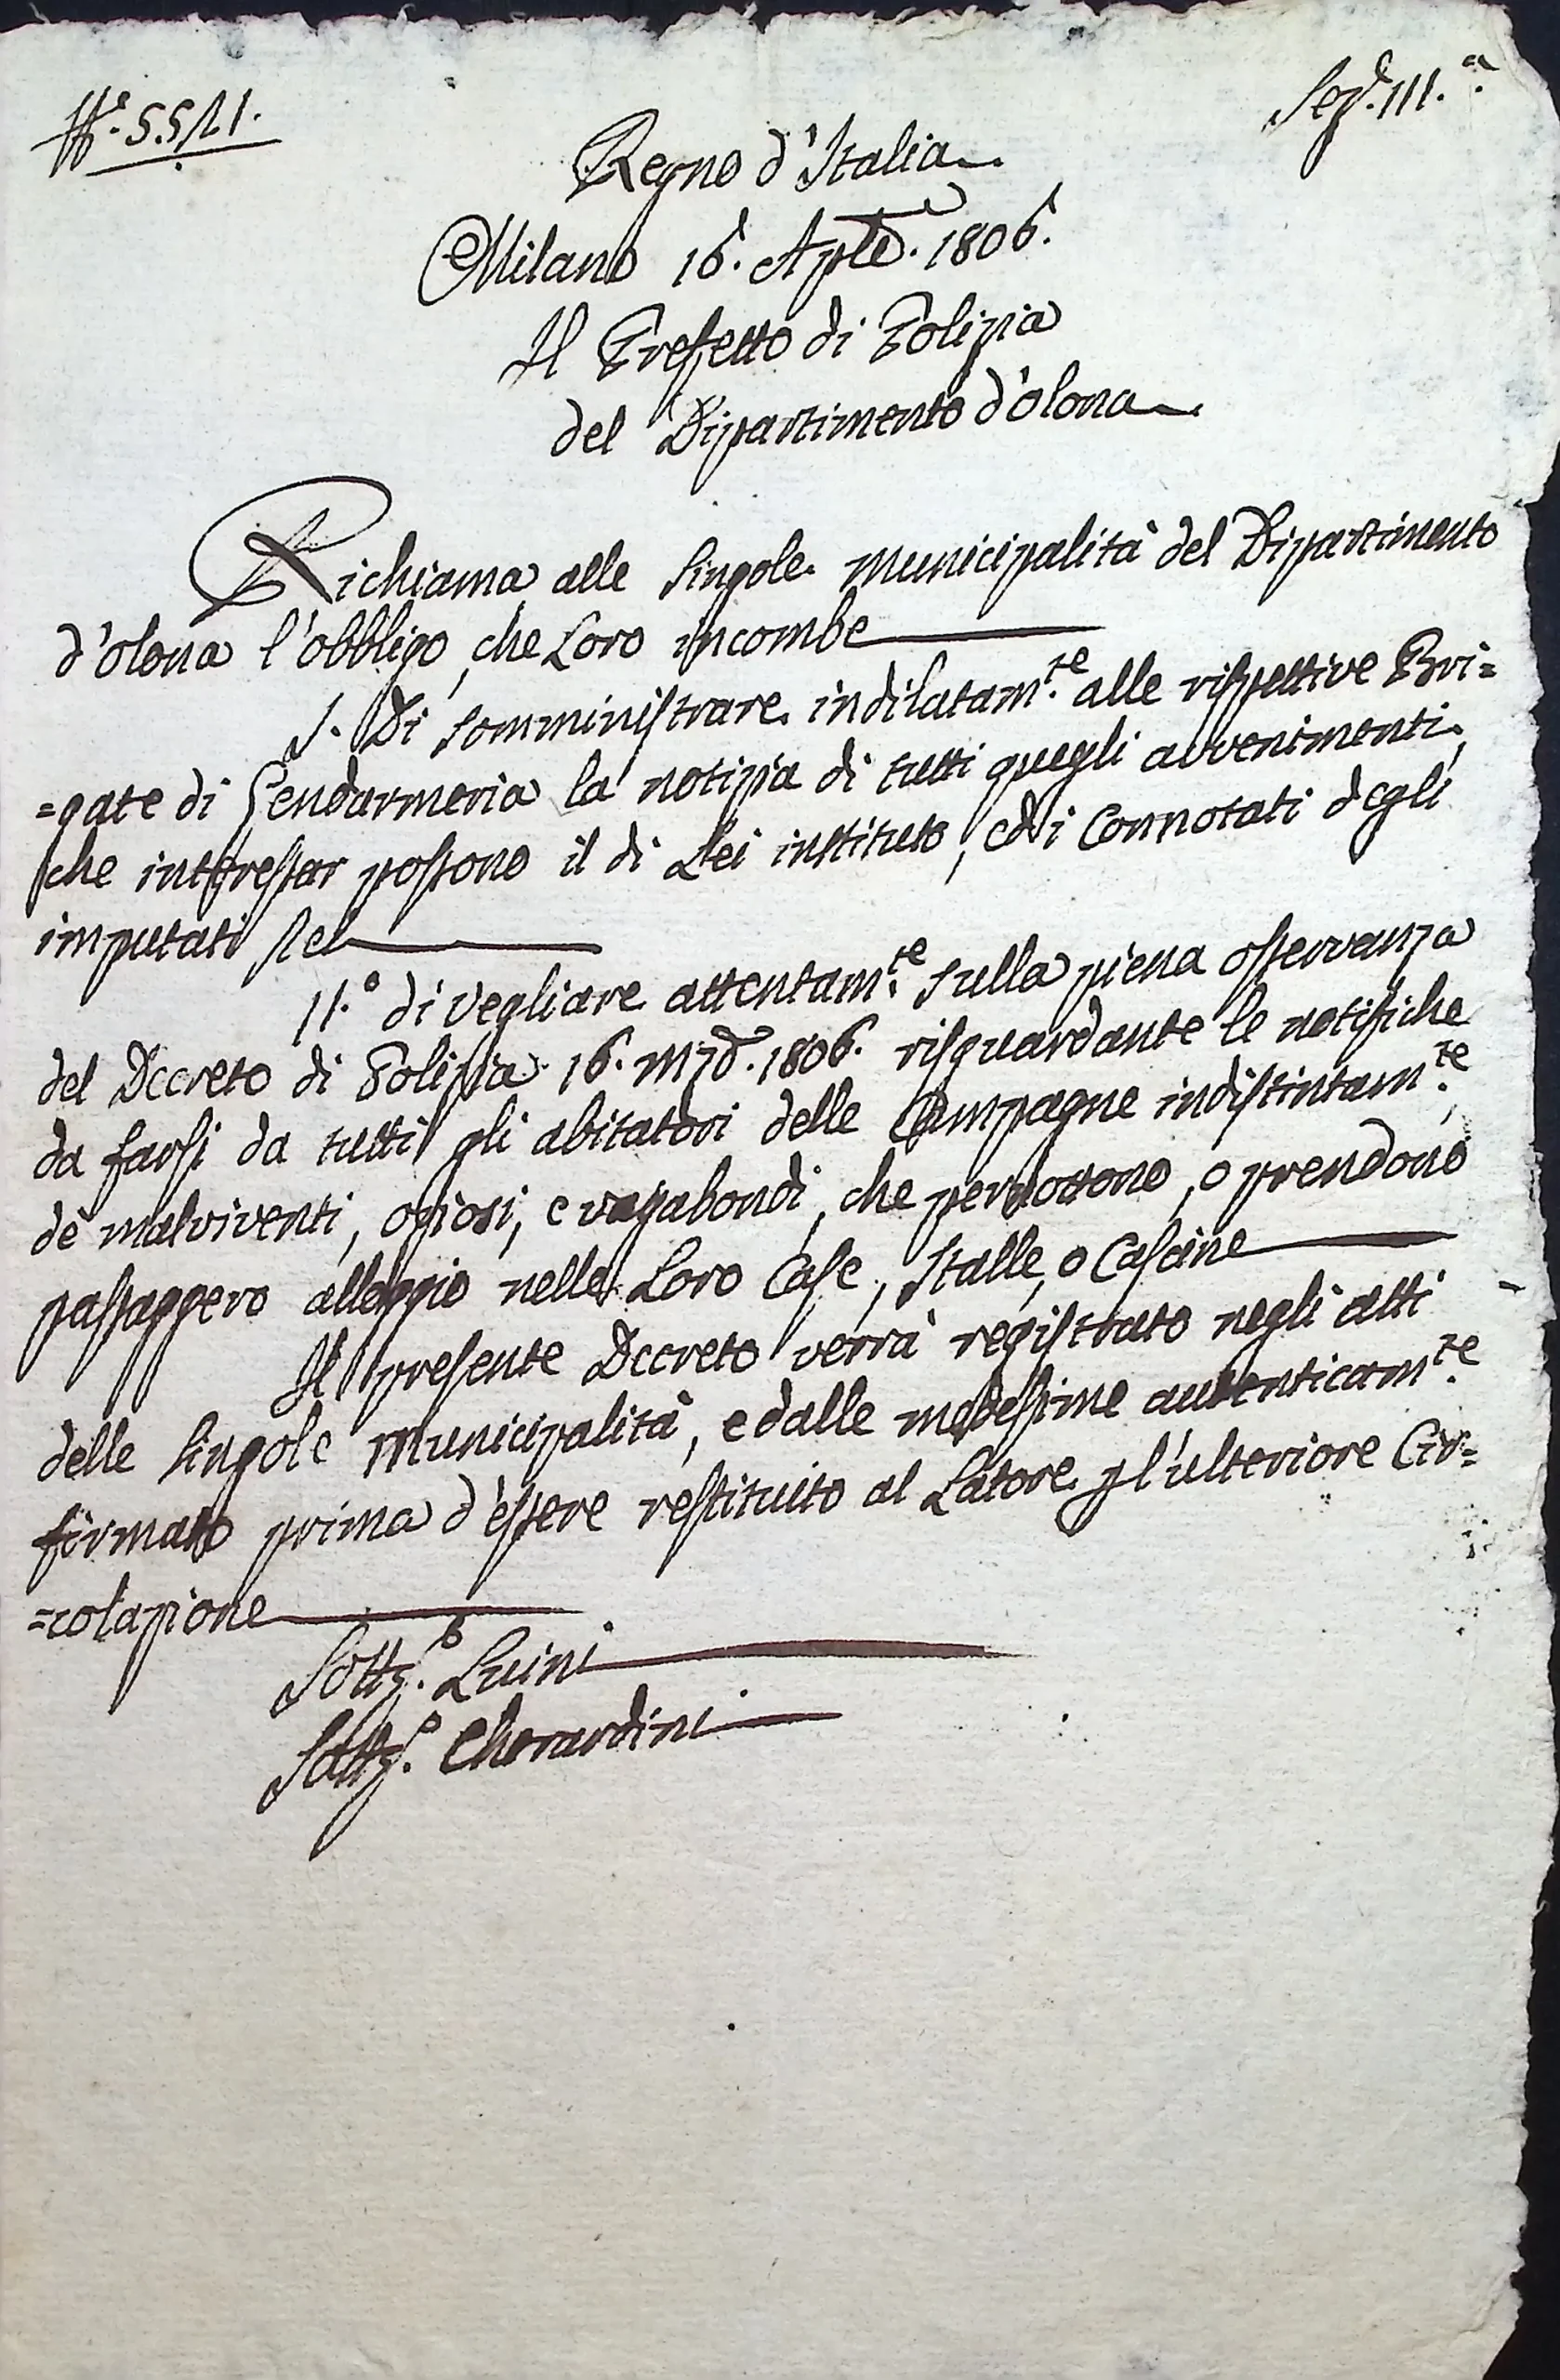 N.° 5521.
Sez.e III.a
Regno d'Italia
Milano 16. Aple. 1806.
Il Prefetto di Polizia
del Dipartimento d'olona
Richiama alle singole municipalità del Dipartimento
d'olona l'obbligo, che Loro incombe
I. Di somministrare indilatam.te alle rispettive Bri=
=gate di Gendarmeria la notizia di tutti quegli avvenimenti,
che interessar possono il di Lei instituto, ed i Connotati degli
imputati
II.° di vegliare attentam.te sulla piena osservanza
del Decreto di Polizia 16. mzo. 1806. risguardante le notifiche
da farsi da tutti gli abitatori delle Campagne indistintam.te
de malviventi, oziosi, e vagabondi, che pernottono, o prendono
passaggero alloggio nelle Loro Case, Stalle, o Cascine
Il presente Decreto verrà registrato negli atti
delle singole Municipalità, e dalle medesime autenticam.te
firmato prima d'essere restituito al Latore p l'ulteriore Cir=
=colazione
Sott.o Luini
Sott.o Gherardini